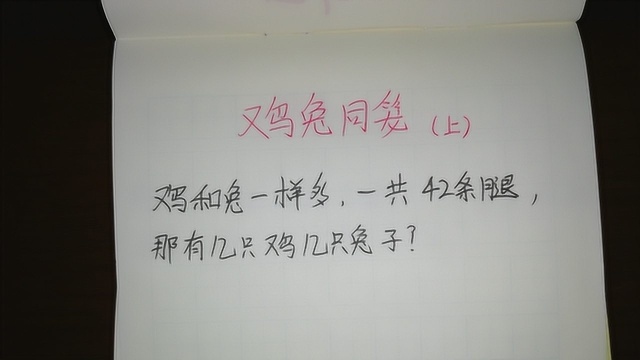 鸡兔同笼（上）
鸡和兔一样多，一共42条腿，
那有几只鸡几只兔子？